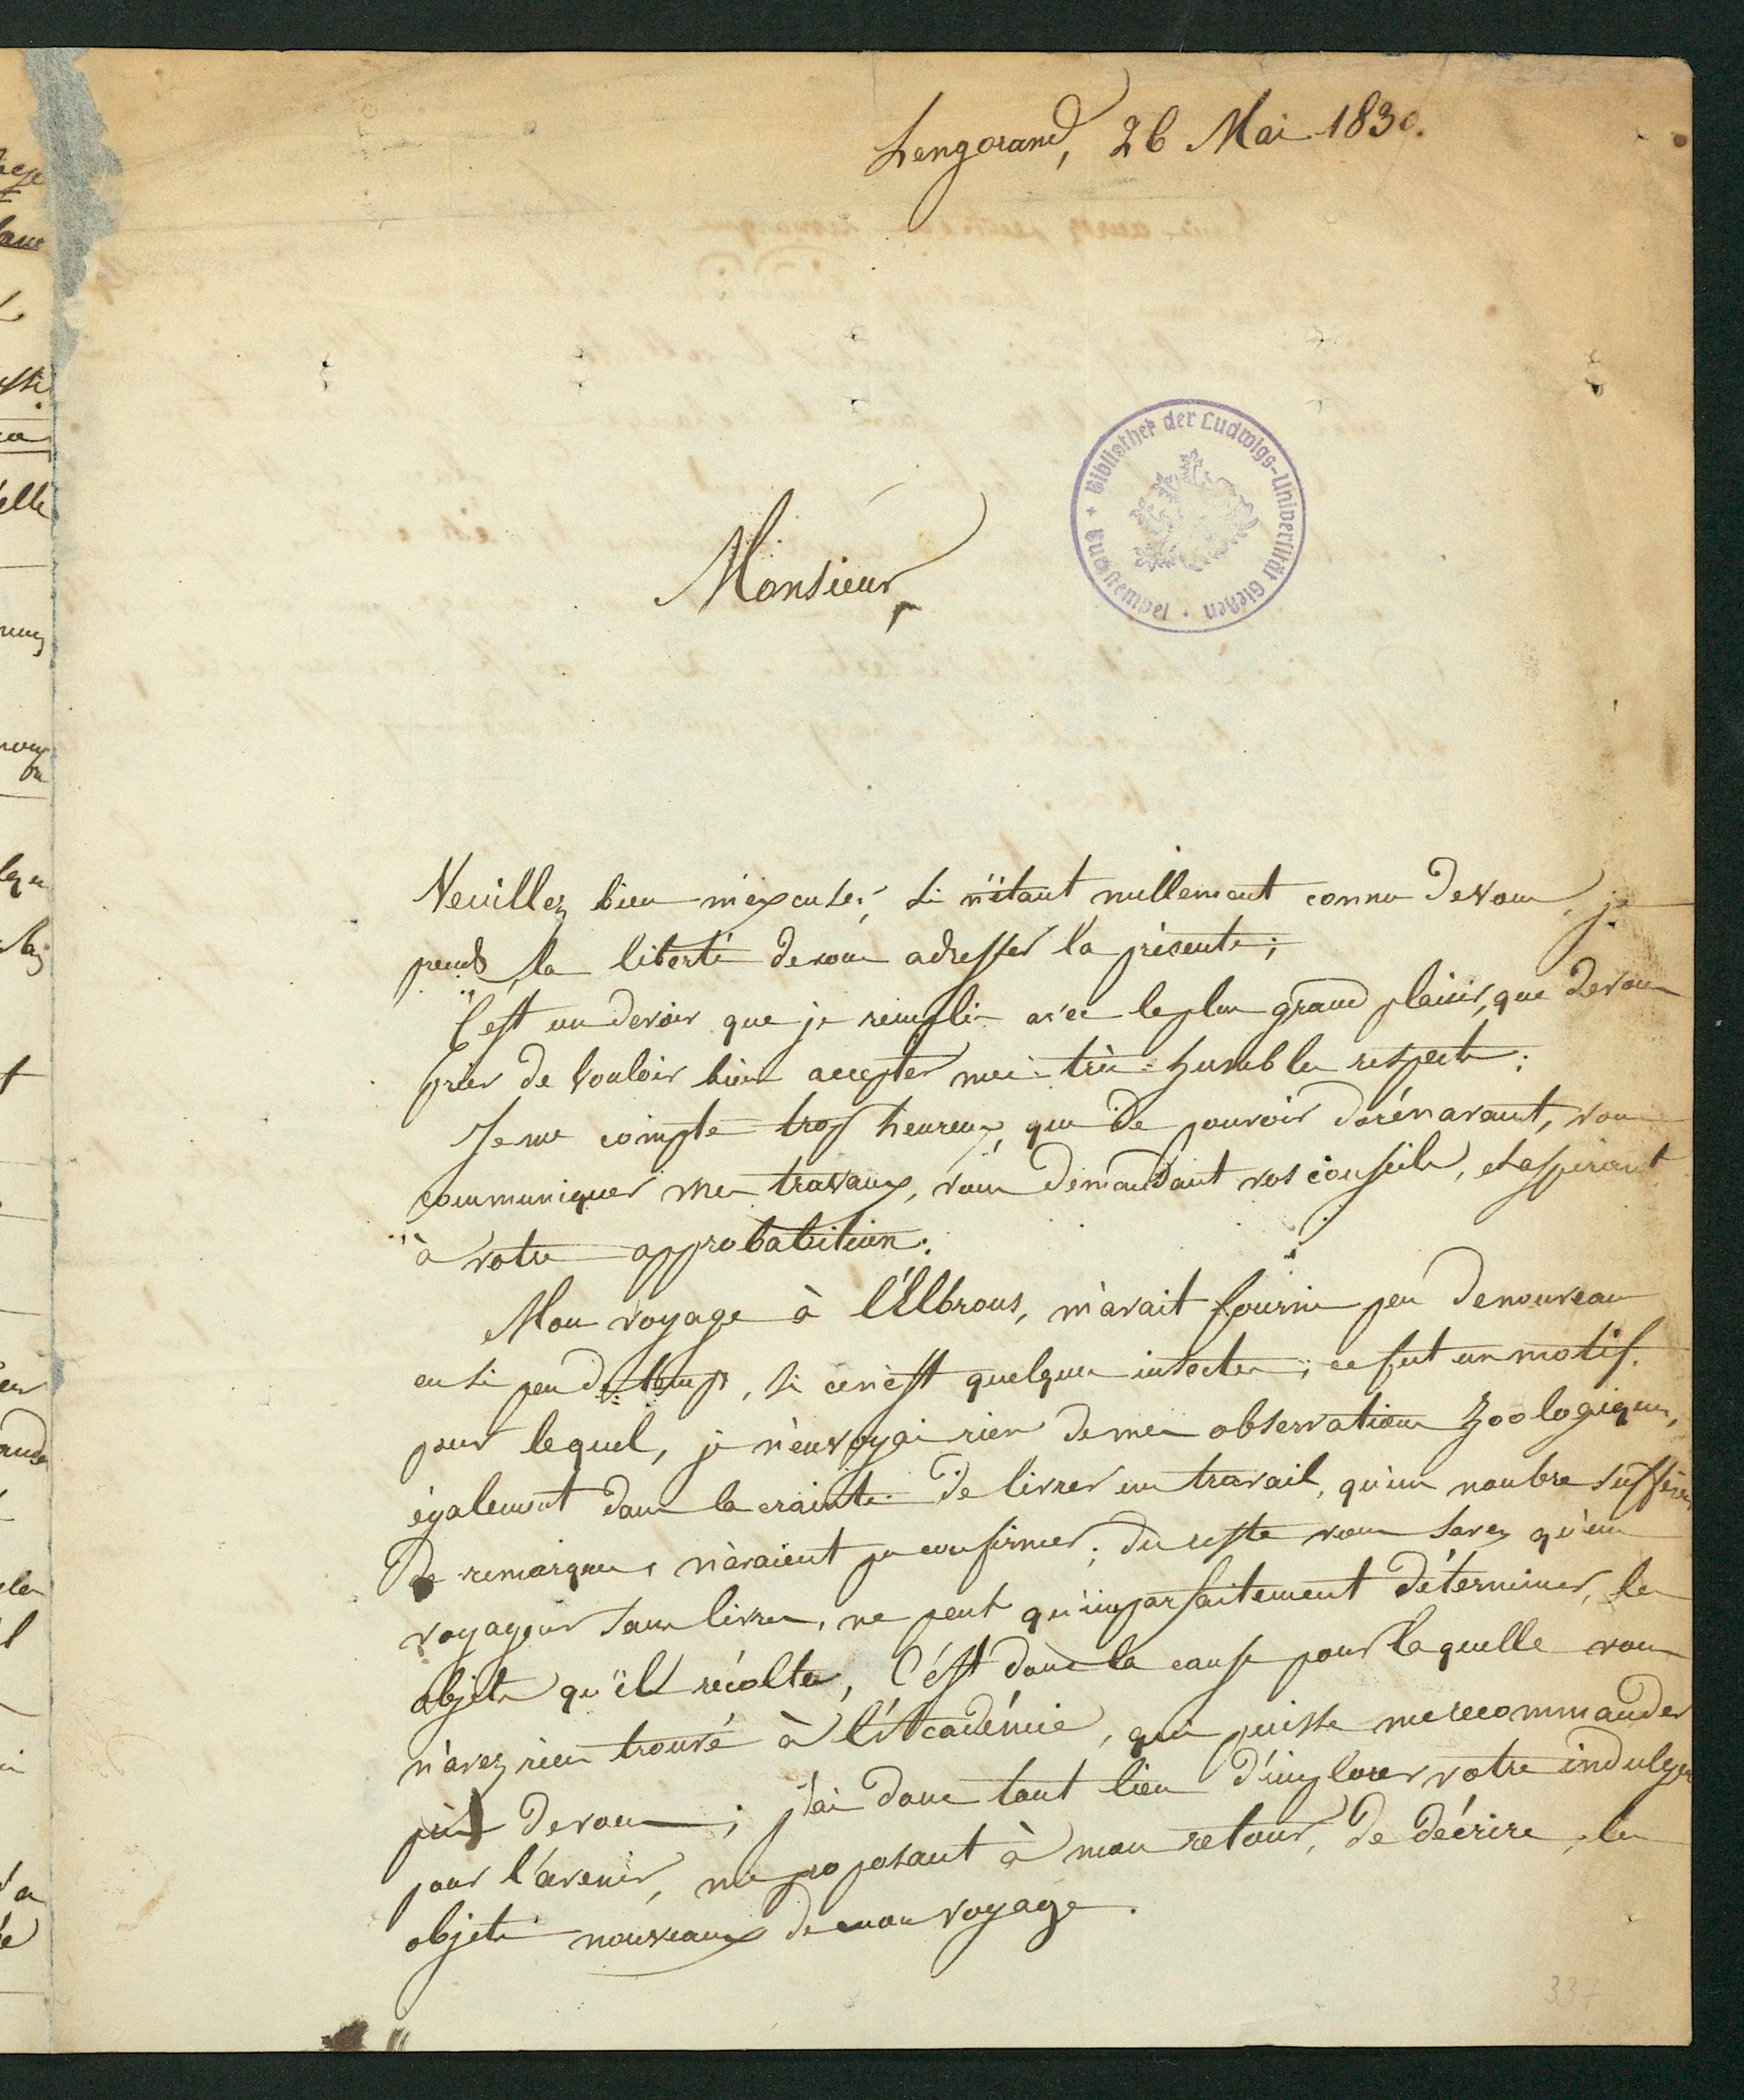 Lengorand, 26 Mai 1830.
Bibliothek der Ludwigs-Universität Gießen + Tauschstempel +
Monsieur,
Veuillez bien m'excuser, si n'étant nullement connu de vous, je
prends la liberté de vous adresser la présente;
C'est un devoir que je remplis avec le plus grand plaisir, que de vous
prier de vouloir bien accepter mes très-humbles respects:
Je me compte trop heureux, que de pouvoir dorénavant, vous
communiquer mes travaux, vous demandant vos conseils, et aspirant
à votre approbabition.
Mon voyage à l'Elbrous, m'avait fourni peu de nouveau
en si peu de temps, si ce n'est quelques insectes; ce fut un motif
pour lequel, je n'envoyai rien de mes observations zoologiques,
également dans la crainte de livrer un travail, qu'un nombre
de remarques n'avaient pu confirmer; du reste vous savez qu'un
voyageur sans livres, ne peut qu'imparfaitement déterminer, les
objets qu'il récolte, C'est donc la cause pour laquelle vous
n'avez rien trouvé à l'Académie, qui puisse me recommander
près de vous; j'ai donc tout lieu d'implorer votre indulgen
pour l'avenir, me proposant à mon retour, de décrire, les
objets nouveaux de mon voyage.
337